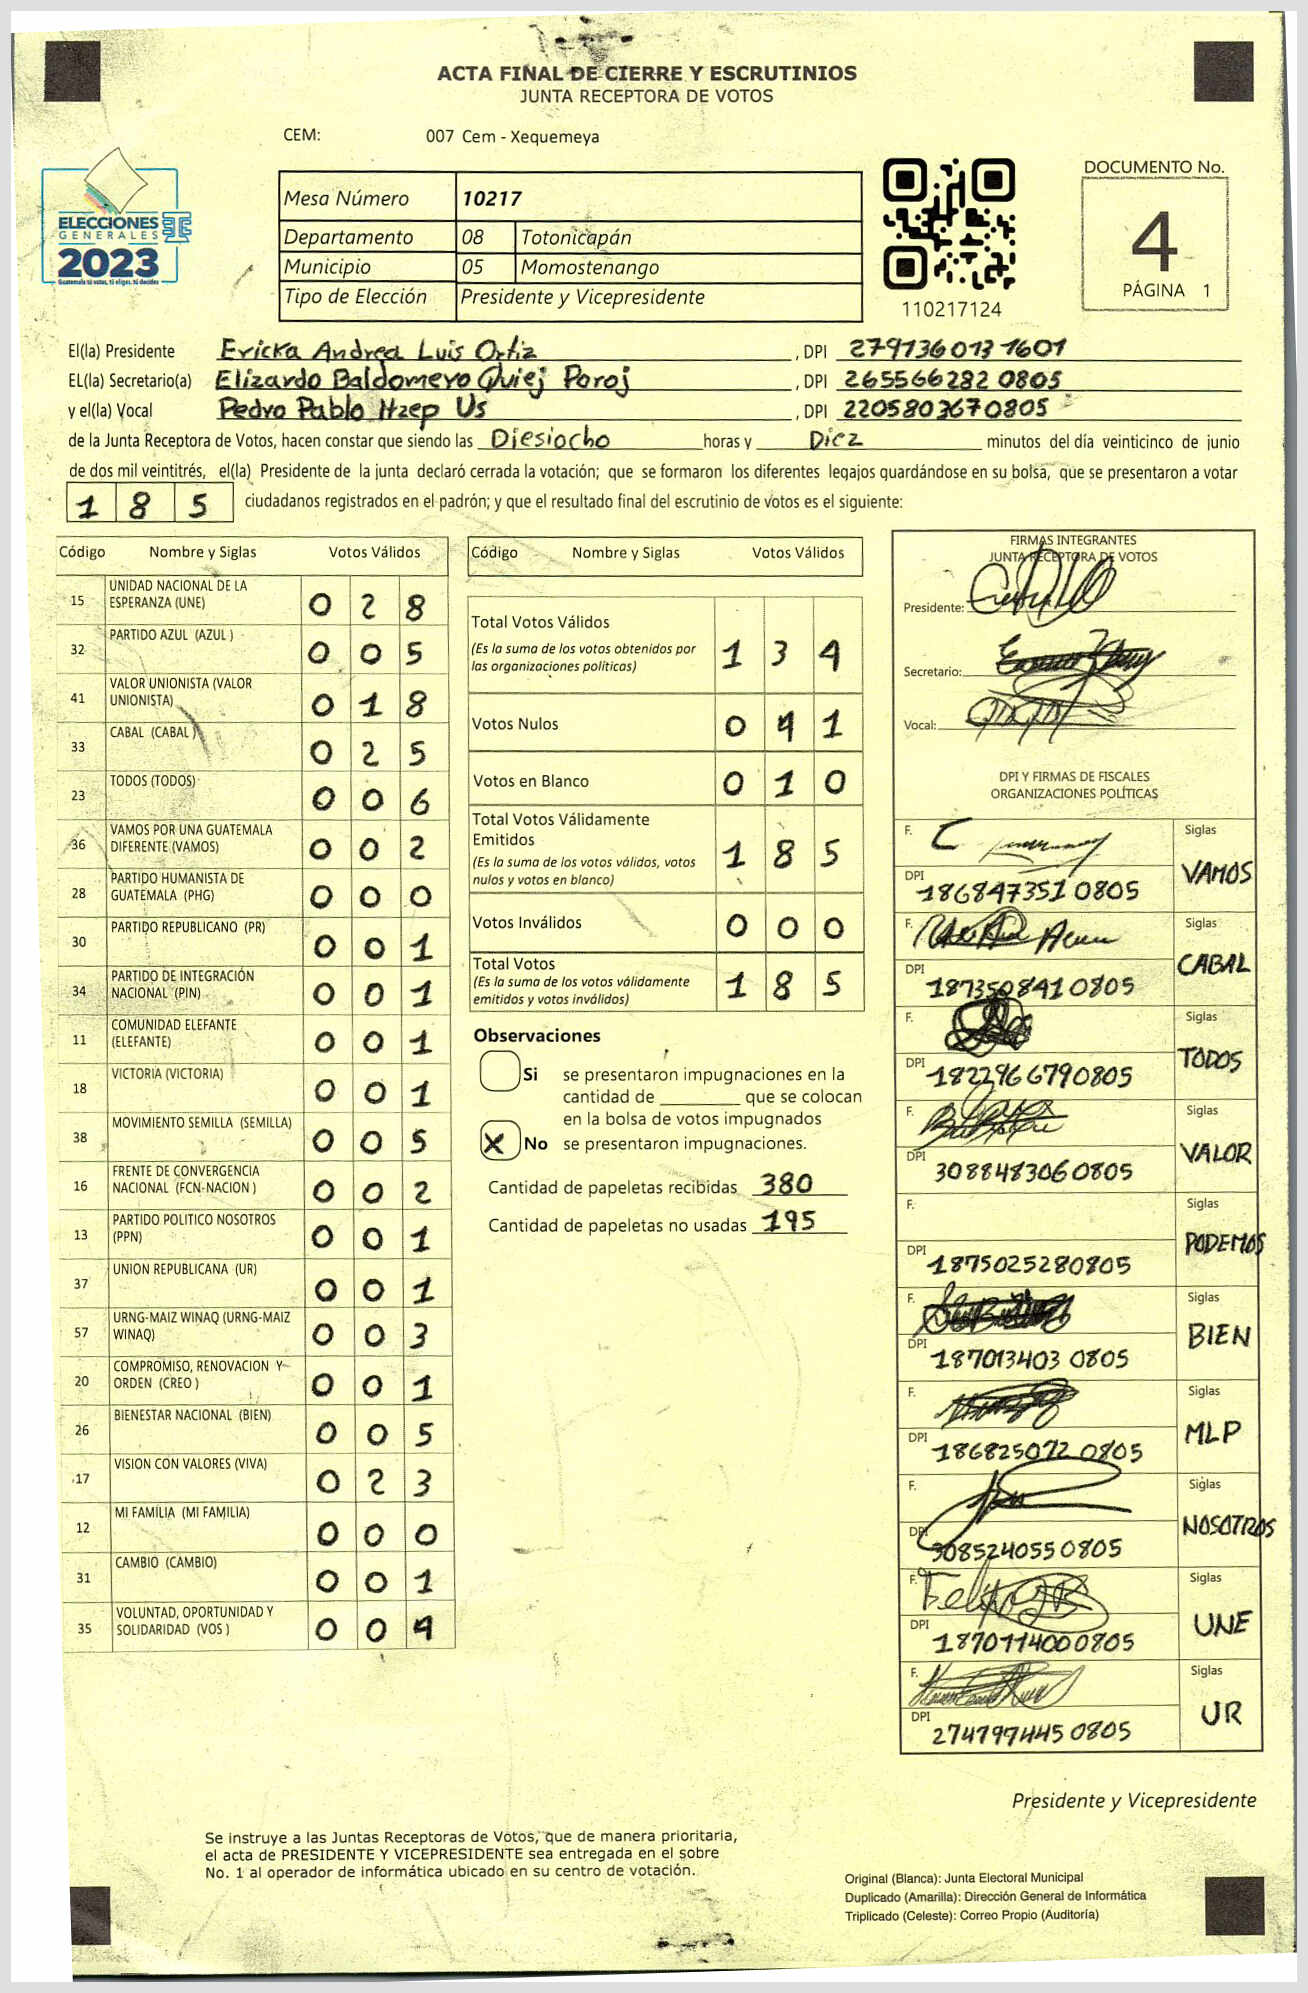 ACTA FINAL DE CIERRE Y ESCRUTINIOS
JUNTA RECEPTORA DE VOTOS
CEM: 007 Cem - Xequemeya
ELECCIONES
GENERALES
2023
Guatemala tú votas, tú eliges, tú decides
Mesa Número 10217
Departamento 08 Totonicapán
Municipio 05 Momostenango
Tipo de Elección Presidente y Vicepresidente
110217124
DOCUMENTO No.
4
PÁGINA 1
El(la) Presidente Ericka Andrea Luis Ortiz , DPI 2791360131601
EL(la) Secretario(a) Elizardo Baldomero Quiej Poroj , DPI 265566282 0805
y el(la) Vocal Pedro Pablo Itzep Us , DPI 2205803670805
de la Junta Receptora de Votos, hacen constar que siendo las Diesiocho horas y Diez minutos del día veinticinco de junio
de dos mil veintitrés, el(la) Presidente de la junta declaró cerrada la votación; que se formaron los diferentes legajos quardándose en su bolsa, que se presentaron a votar
185 ciudadanos registrados en el padrón; y que el resultado final del escrutinio de votos es el siguiente:
Código Nombre y Siglas Votos Válidos
15 UNIDAD NACIONAL DE LA ESPERANZA (UNE) 0 2 8
32 PARTIDO AZUL (AZUL ) 0 0 5
41 VALOR UNIONISTA (VALOR UNIONISTA) 0 1 8
33 CABAL (CABAL ) 0 2 5
23 TODOS (TODOS) 0 0 6
36 VAMOS POR UNA GUATEMALA DIFERENTE (VAMOS) 0 0 2
28 PARTIDO HUMANISTA DE GUATEMALA (PHG) 0 0 0
30 PARTIDO REPUBLICANO (PR) 0 0 1
34 PARTIDO DE INTEGRACIÓN NACIONAL (PIN) 0 0 1
11 COMUNIDAD ELEFANTE (ELEFANTE) 0 0 1
18 VICTORIA (VICTORIA) 0 0 1
38 MOVIMIENTO SEMILLA (SEMILLA) 0 0 5
16 FRENTE DE CONVERGENCIA NACIONAL (FCN-NACION ) 0 0 2
13 PARTIDO POLITICO NOSOTROS (PPN) 0 0 1
37 UNION REPUBLICANA (UR) 0 0 1
57 URNG-MAIZ WINAQ (URNG-MAIZ WINAQ) 0 0 3
20 COMPROMISO, RENOVACION Y ORDEN (CREO ) 0 0 1
26 BIENESTAR NACIONAL (BIEN) 0 0 5
17 VISION CON VALORES (VIVA) 0 2 3
12 MI FAMILIA (MI FAMILIA) 0 0 0
31 CAMBIO (CAMBIO) 0 0 1
35 VOLUNTAD, OPORTUNIDAD Y SOLIDARIDAD (VOS ) 0 0 4
Código Nombre y Siglas Votos Válidos
Total Votos Válidos 1 3 4
(Es la suma de los votos obtenidos por
las organizaciones políticas)
Votos Nulos 0 4 1
Votos en Blanco 0 1 0
Total Votos Válidamente
Emitidos 1 8 5
(Es la suma de los votos válidos, votos
nulos y votos en blanco)
Votos Inválidos 0 0 0
Total Votos 1 8 5
(Es la suma de los votos válidamente
emitidos y votos inválidos)
Observaciones
Si se presentaron impugnaciones en la
cantidad de ________ que se colocan
en la bolsa de votos impugnados
X No se presentaron impugnaciones.
Cantidad de papeletas recibidas 380
Cantidad de papeletas no usadas 195
FIRMAS INTEGRANTES
JUNTA RECEPTORA DE VOTOS
Presidente:
Secretario:
Vocal:
DPI Y FIRMAS DE FISCALES
ORGANIZACIONES POLÍTICAS
F. Siglas
DPI 186847351 0805 VAMOS
F. Siglas
DPI 1873508410805 CABAL
F. Siglas
DPI 1822966790805 TODOS
F. Siglas
DPI 3088483060805 VALOR
F. Siglas
DPI 1875025280805 PODEMOS
F. Siglas
DPI 187013403 0805 BIEN
F. Siglas
DPI 186825072 0805 MLP
F. Siglas
DPI 3085240550805 NOSOTROS
F. Siglas
DPI 1870114000805 UNE
F. Siglas
DPI 274797445 0805 UR
Presidente y Vicepresidente
Se instruye a las Juntas Receptoras de Votos, que de manera prioritaria,
el acta de PRESIDENTE Y VICEPRESIDENTE sea entregada en el sobre
No. 1 al operador de informática ubicado en su centro de votación.
Original (Blanca): Junta Electoral Municipal
Duplicado (Amarilla): Dirección General de Informática
Triplicado (Celeste): Correo Propio (Auditoría)